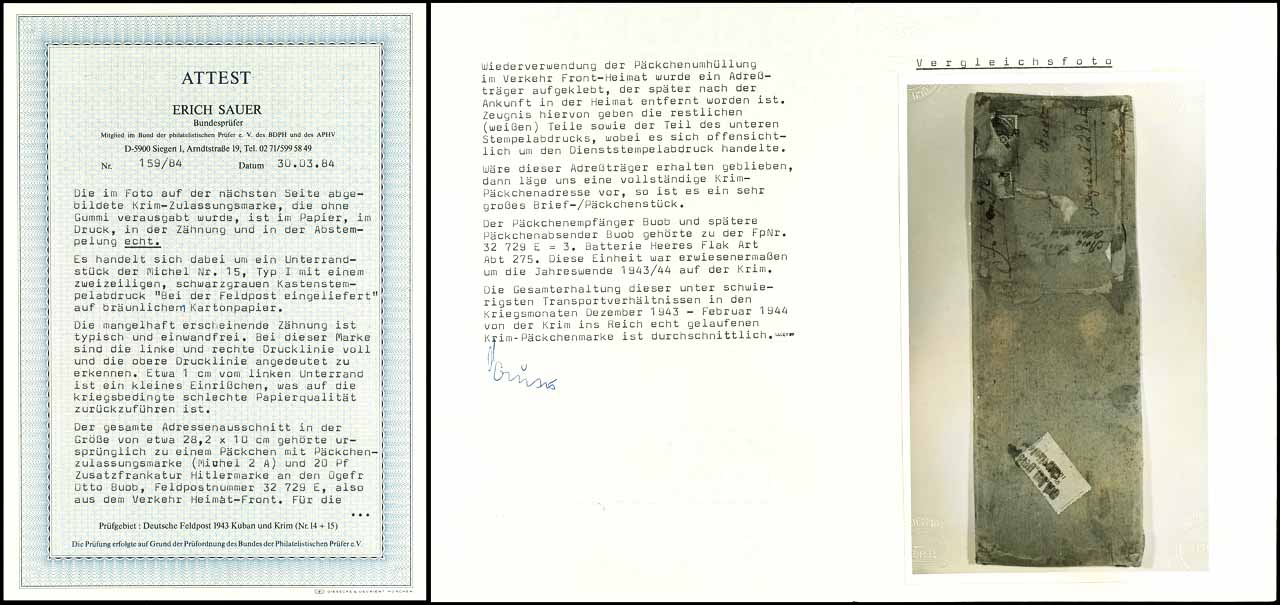 ATTEST
ERICH SAUER
Bundesprüfer
Mitglied im Bund der philatelistischen Prüfer e. V. des BDPH und des APHV
D-5900 Siegen 1, Arndtstraße 19, Tel. 02 71/599 58 49
Nr. 159/84 Datum 30.03.84
Die im Foto auf der nächsten Seite abge-
bildete Krim-Zulassungsmarke, die ohne
Gummi verausgabt wurde, ist im Papier, im
Druck, in der Zähnung und in der Abstem-
pelung echt.
Es handelt sich dabei um ein Unterrand-
stück der Michel Nr. 15, Typ I mit einem
zweizeiligen, schwarzgrauen Kastenstem-
pelabdruck "Bei der Feldpost eingeliefert"
auf bräunlichem Kartonpapier.
Die mangelhaft erscheinende Zähnung ist
typisch und einwandfrei. Bei dieser Marke
sind die linke und rechte Drucklinie voll
und die obere Drucklinie angedeutet zu
erkennen. Etwa 1 cm vom linken Unterrand
ist ein kleines Einrißchen, was auf die
kriegsbedingte schlechte Papierqualität
zurückzuführen ist.
Der gesamte Adressenausschnitt in der
Größe von etwa 28,2 x 10 cm gehörte ur-
sprünglich zu einem Päckchen mit Päckchen-
zulassungsmarke (Michel 2 A) und 20 Pf
Zusatzfrankatur Hitlermarke an den Ogefr
Otto Buob, Feldpostnummer 32 729 E, also
aus dem Verkehr Heimat-Front. Für die
...
Prüfgebiet : Deutsche Feldpost 1943 Kuban und Krim (Nr. 14 + 15)
Die Prüfung erfolgte auf Grund der Prüfordnung des Bundes der Philatelistischen Prüfer e.V.
GIESECKE & DEVRIENT MÜNCHEN
Wiederverwendung der Päckchenumhüllung
im Verkehr Front-Heimat wurde ein Adreß-
träger aufgeklebt, der später nach der
Ankunft in der Heimat entfernt worden ist.
Zeugnis hiervon geben die restlichen
(weißen) Teile sowie der Teil des unteren
Stempelabdrucks, wobei es sich offensicht-
lich um den Dienststempelabdruck handelte.
Wäre dieser Adreßträger erhalten geblieben,
dann läge uns eine vollständige Krim-
Päckchenadresse vor, so ist es ein sehr
großes Brief-/Päckchenstück.
Der Päckchenempfänger Buob und spätere
Päckchenabsender Buob gehörte zu der FpNr.
32 729 E = 3. Batterie Heeres Flak Art
Abt 275. Diese Einheit war erwiesenermaßen
um die Jahreswende 1943/44 auf der Krim.
Die Gesamterhaltung dieser unter schwie-
rigsten Transportverhältnissen in den
Kriegsmonaten Dezember 1943 - Februar 1944
von der Krim ins Reich echt gelaufenen
Krim-Päckchenmarke ist durchschnittlich.
Vergleichsfoto